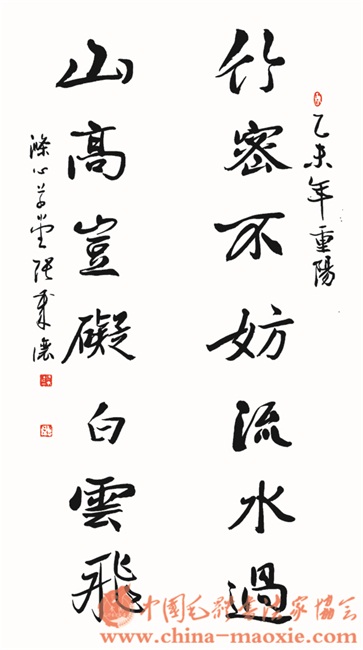 乙未年重陽
竹密不妨流水過
山高豈礙白雲飛
滌心草堂張秉濂
中国毛体书法家协会
www.china-maoxie.com